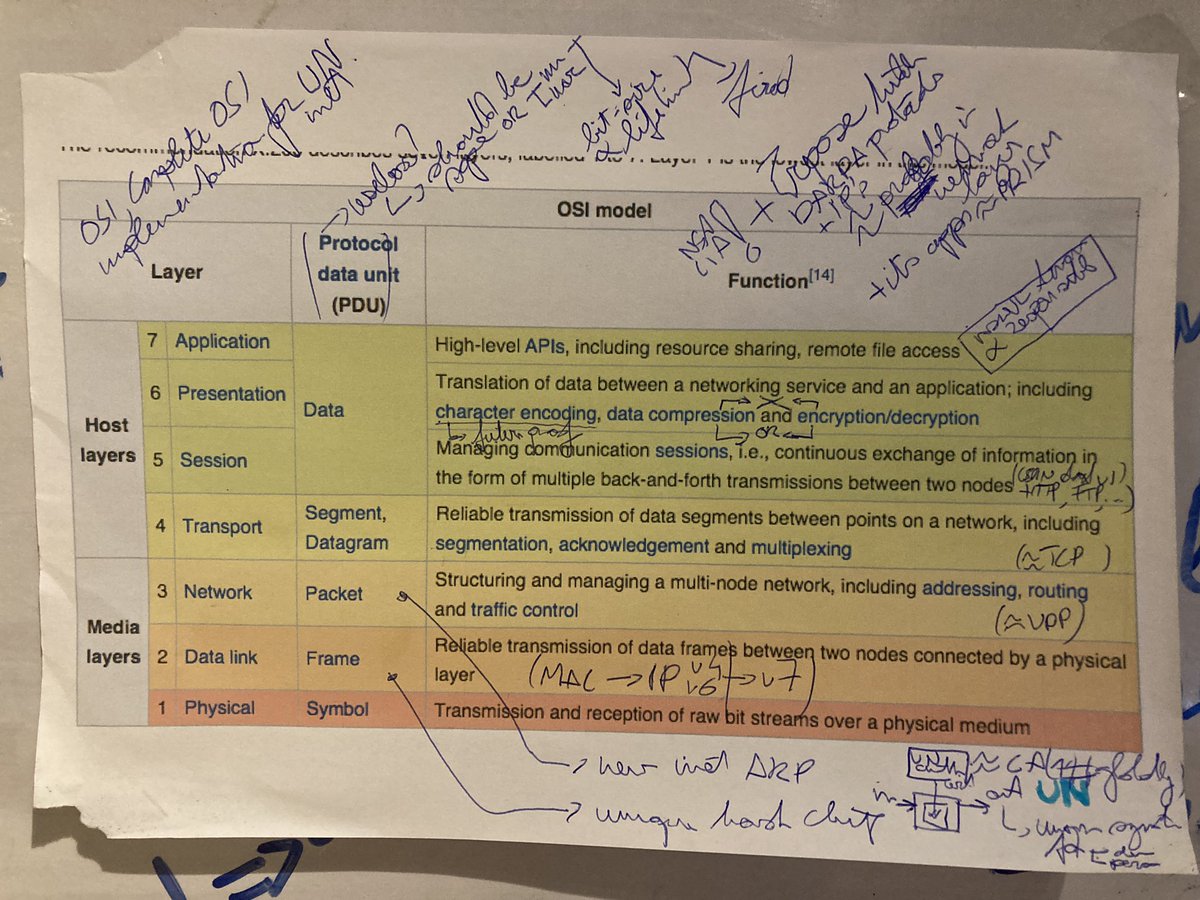 OSI complete OSI
implementation for UN
should be
bit-size
& lifetime
fixed
NSA
CIA
+
DARPA protocols
network
layer
+ its apps ≈ PRISM
OSI model
Layer
Protocol
data unit
(PDU)
Function[14]
Host
layers
7 Application
Data
High-level APIs, including resource sharing, remote file access
6 Presentation
Translation of data between a networking service and an application; including
character encoding, data compression and encryption/decryption
future proof
OR
5 Session
Managing communication sessions, i.e., continuous exchange of information in
the form of multiple back-and-forth transmissions between two nodes
HTTP, FTP, ...)
4 Transport
Segment,
Datagram
Reliable transmission of data segments between points on a network, including
segmentation, acknowledgement and multiplexing
(≈TCP)
Media
layers
3 Network
Packet
Structuring and managing a multi-node network, including addressing, routing
and traffic control
(≈UDP)
2 Data link
Frame
Reliable transmission of data frames between two nodes connected by a physical
layer
(MAC → IP v4 v6 → v7)
1 Physical
Symbol
Transmission and reception of raw bit streams over a physical medium
→ new inet ARP
→ unique hash chip
≈ CA
in
out
UN